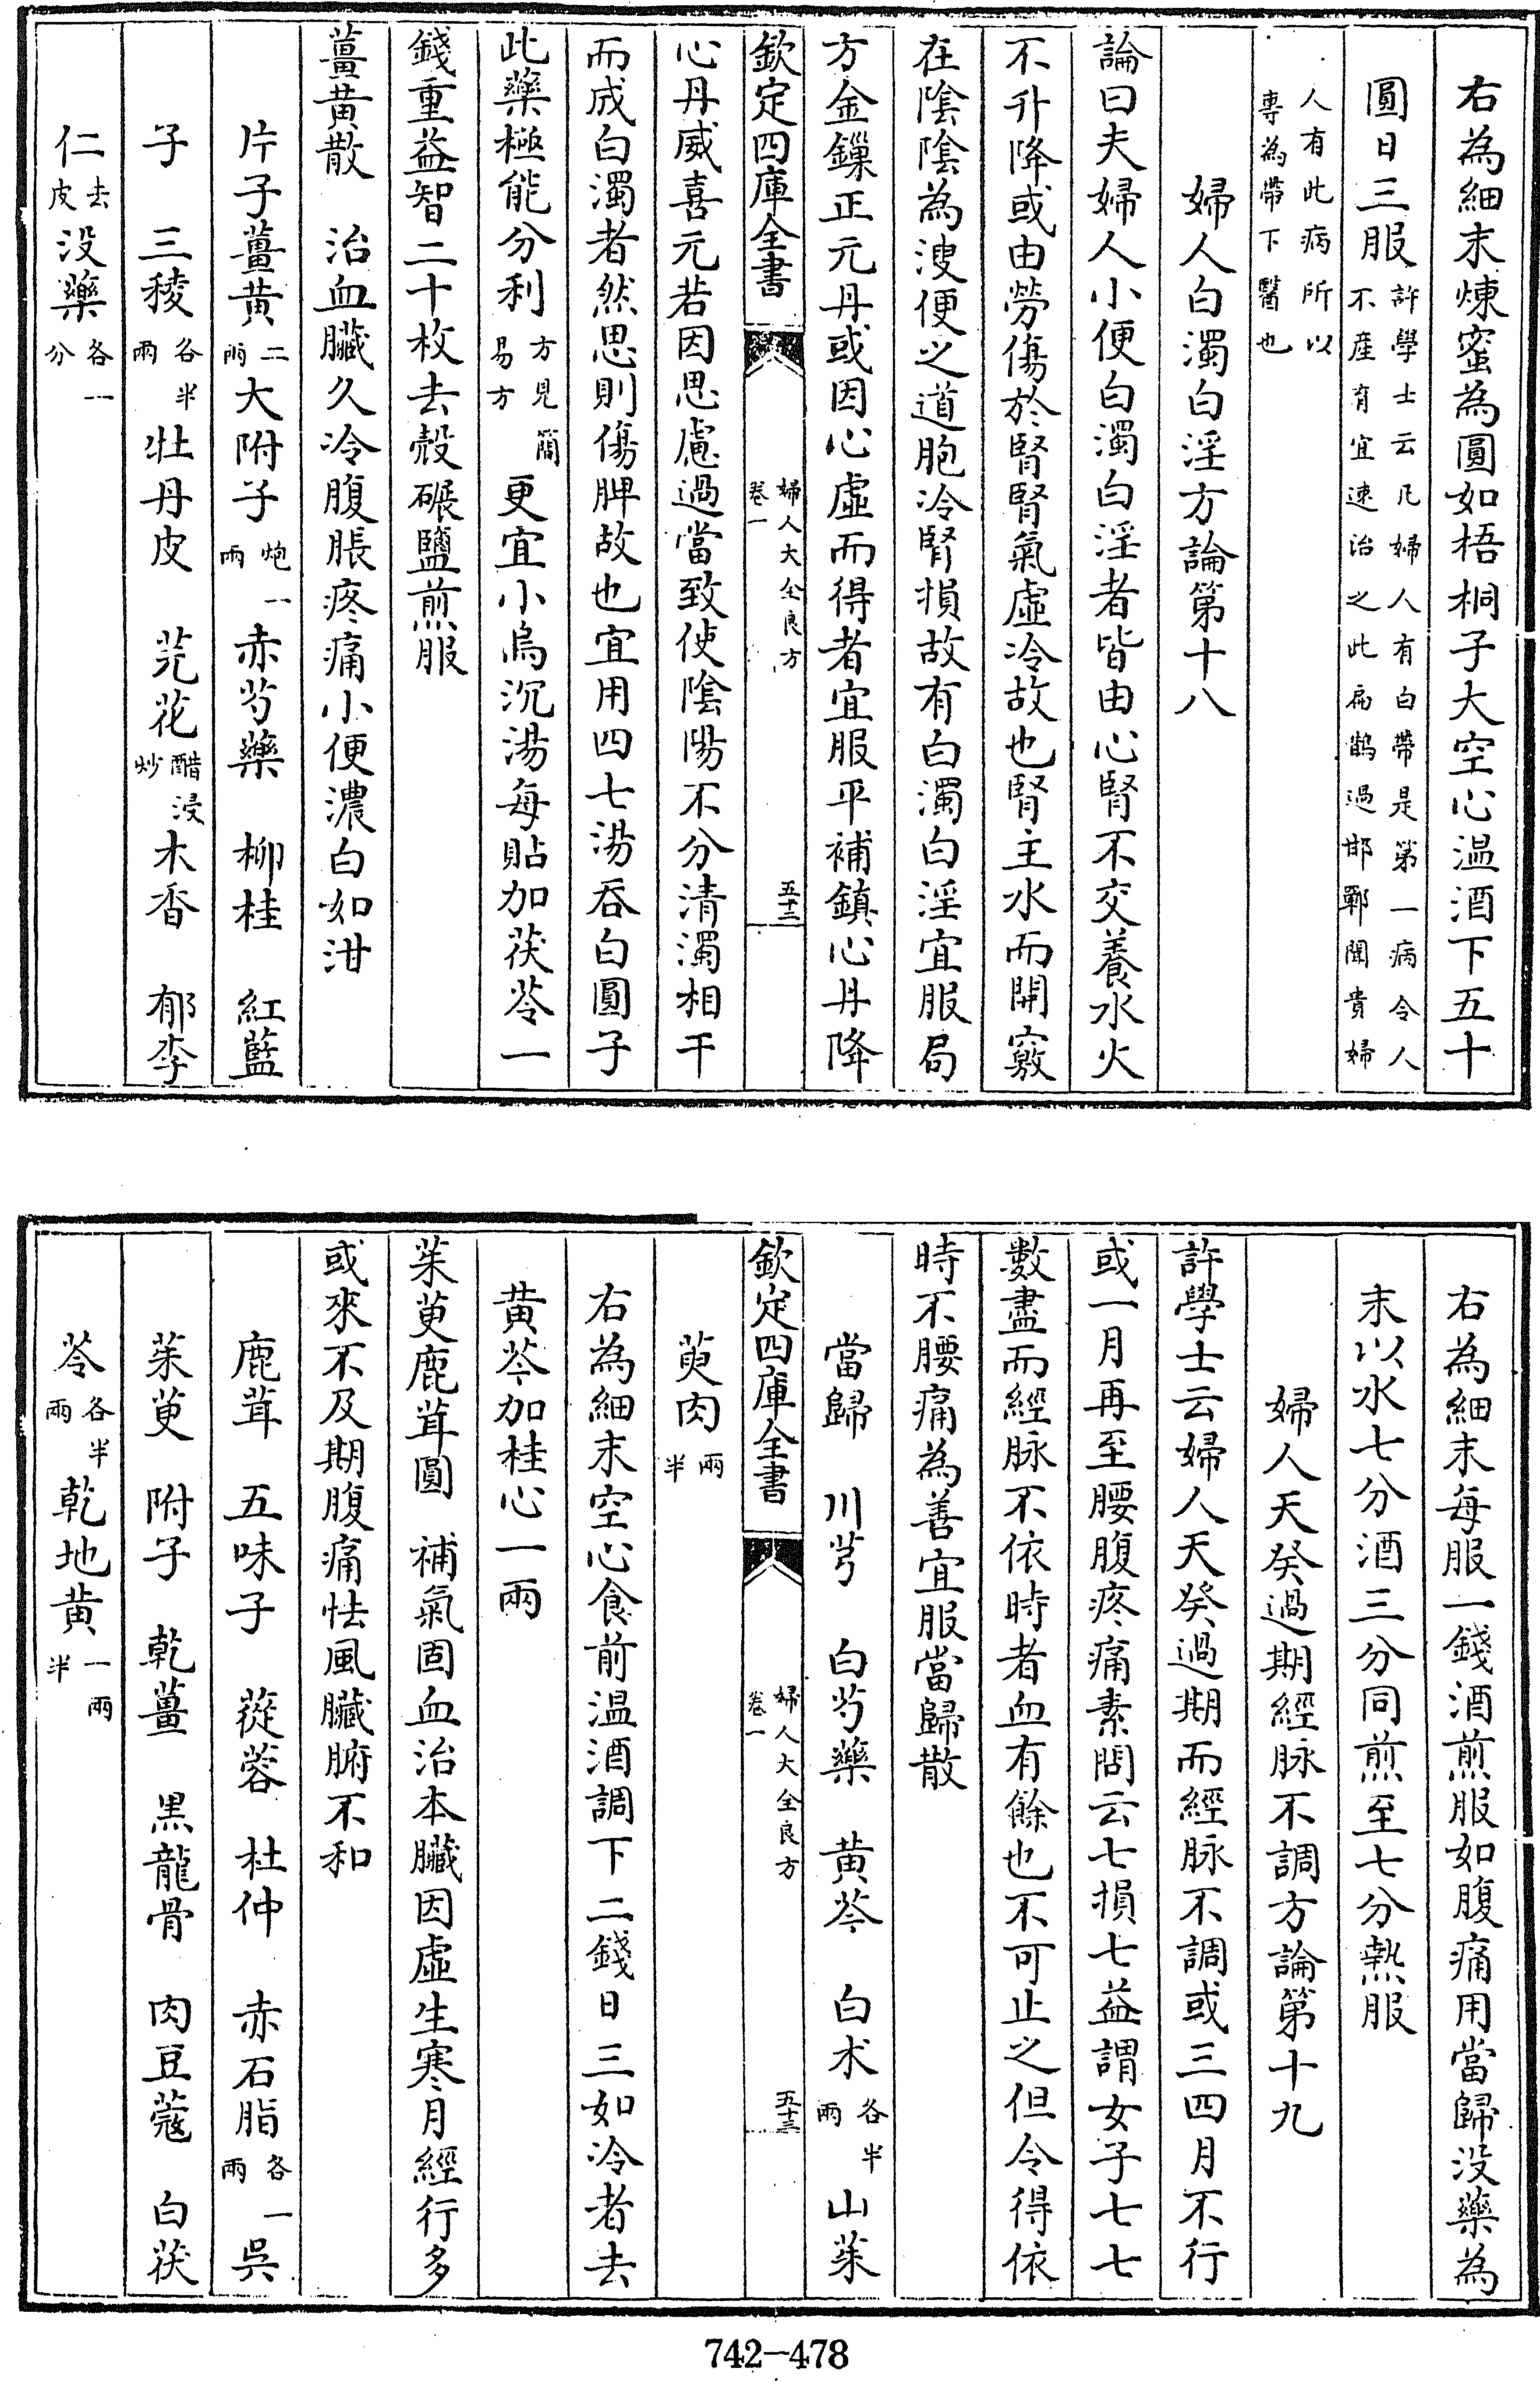 右為細末煉蜜為圓如梧桐子大空心温酒下五十
圓日三服許學士云凡婦人有白帶是第一病令人不産育宜速治之此扁鵲過邯鄲聞貴婦
人有此病所以專為帶下醫也
婦人白濁白淫方論第十八
論曰夫婦人小便白濁白淫者皆由心腎不交養水火
不升降或由勞傷於腎腎氣虛冷故也腎主水而開竅
在陰陰為溲便之道胞冷腎損故有白濁白淫宜服局
方金鏁正元丹或因心虛而得者宜服平補鎮心丹降
欽定四庫全書 婦人大全良方 卷一 五十二
心丹威喜元若因思慮過當致使陰陽不分清濁相干
而成白濁者然思則傷脾故也宜用四七湯吞白圓子
此藥極能分利方見簡易方更宜小烏沉湯每貼加茯苓一
錢重益智二十枚去殼碾鹽煎服
薑黄散 治血臟久冷腹脹疼痛小便濃白如泔
片子薑黄二兩 大附子炮一兩 赤芍藥 柳桂 紅藍
子 三稜各半兩 牡丹皮 芫花醋浸炒 木香 郁李
仁去皮 没藥各一分
右為細末每服一錢酒煎服如腹痛用當歸没藥為
末以水七分酒三分同煎至七分熱服
婦人天癸過期經脉不調方論第十九
許學士云婦人天癸過期而經脉不調或三四月不行
或一月再至腰腹疼痛素問云七損七益謂女子七七
數盡而經脉不依時者血有餘也不可止之但令得依
時不腰痛為善宜服當歸散
當歸 川芎 白芍藥 黄芩 白朮各半兩 山茱
欽定四庫全書 婦人大全良方 卷一 五十三
萸肉兩半
右為細末空心食前温酒調下二錢日三如冷者去
黄芩加桂心一兩
茱萸鹿茸圓 補氣固血治本臟因虛生寒月經行多
或來不及期腹痛怯風臟腑不和
鹿茸 五味子 蓯蓉 杜仲 赤石脂各一兩 吳
茱萸 附子 乾薑 黒龍骨 肉豆蔻 白茯
苓各半兩 乾地黄一兩半
742-478